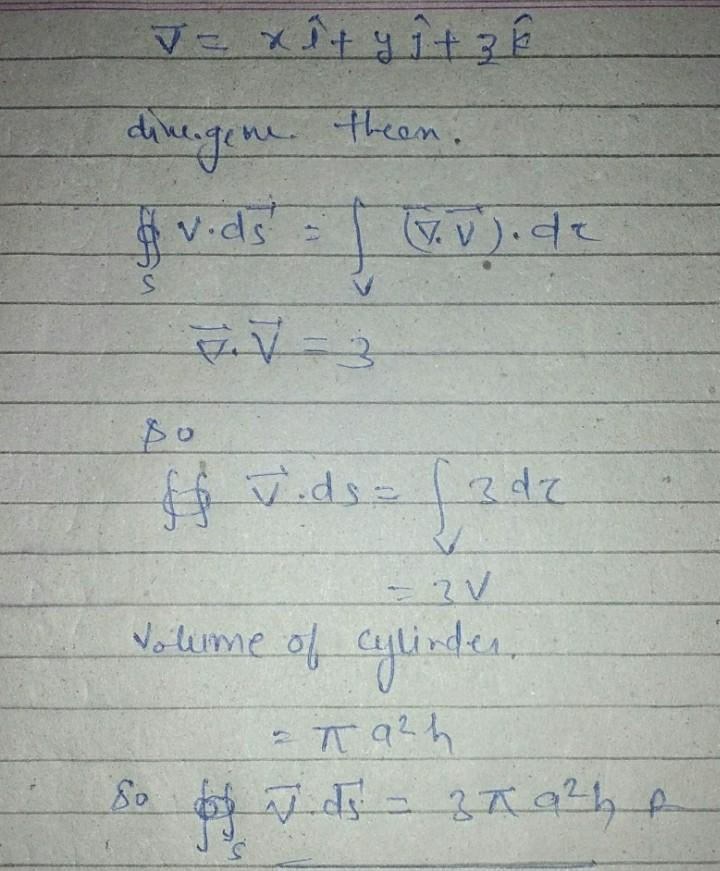 V⃗ = x î + y ĵ + z k̂
divergene theon.
∯ V·ds⃗ = ∫ (∇⃗·V⃗)·dτ
S V
∇⃗·V⃗ = 3
so
∯ V⃗·ds = ∫ 3 dτ
V
= 3V
Volume of cylinder.
= π a²h
So ∯ V⃗·ds⃗ = 3π a²h
S